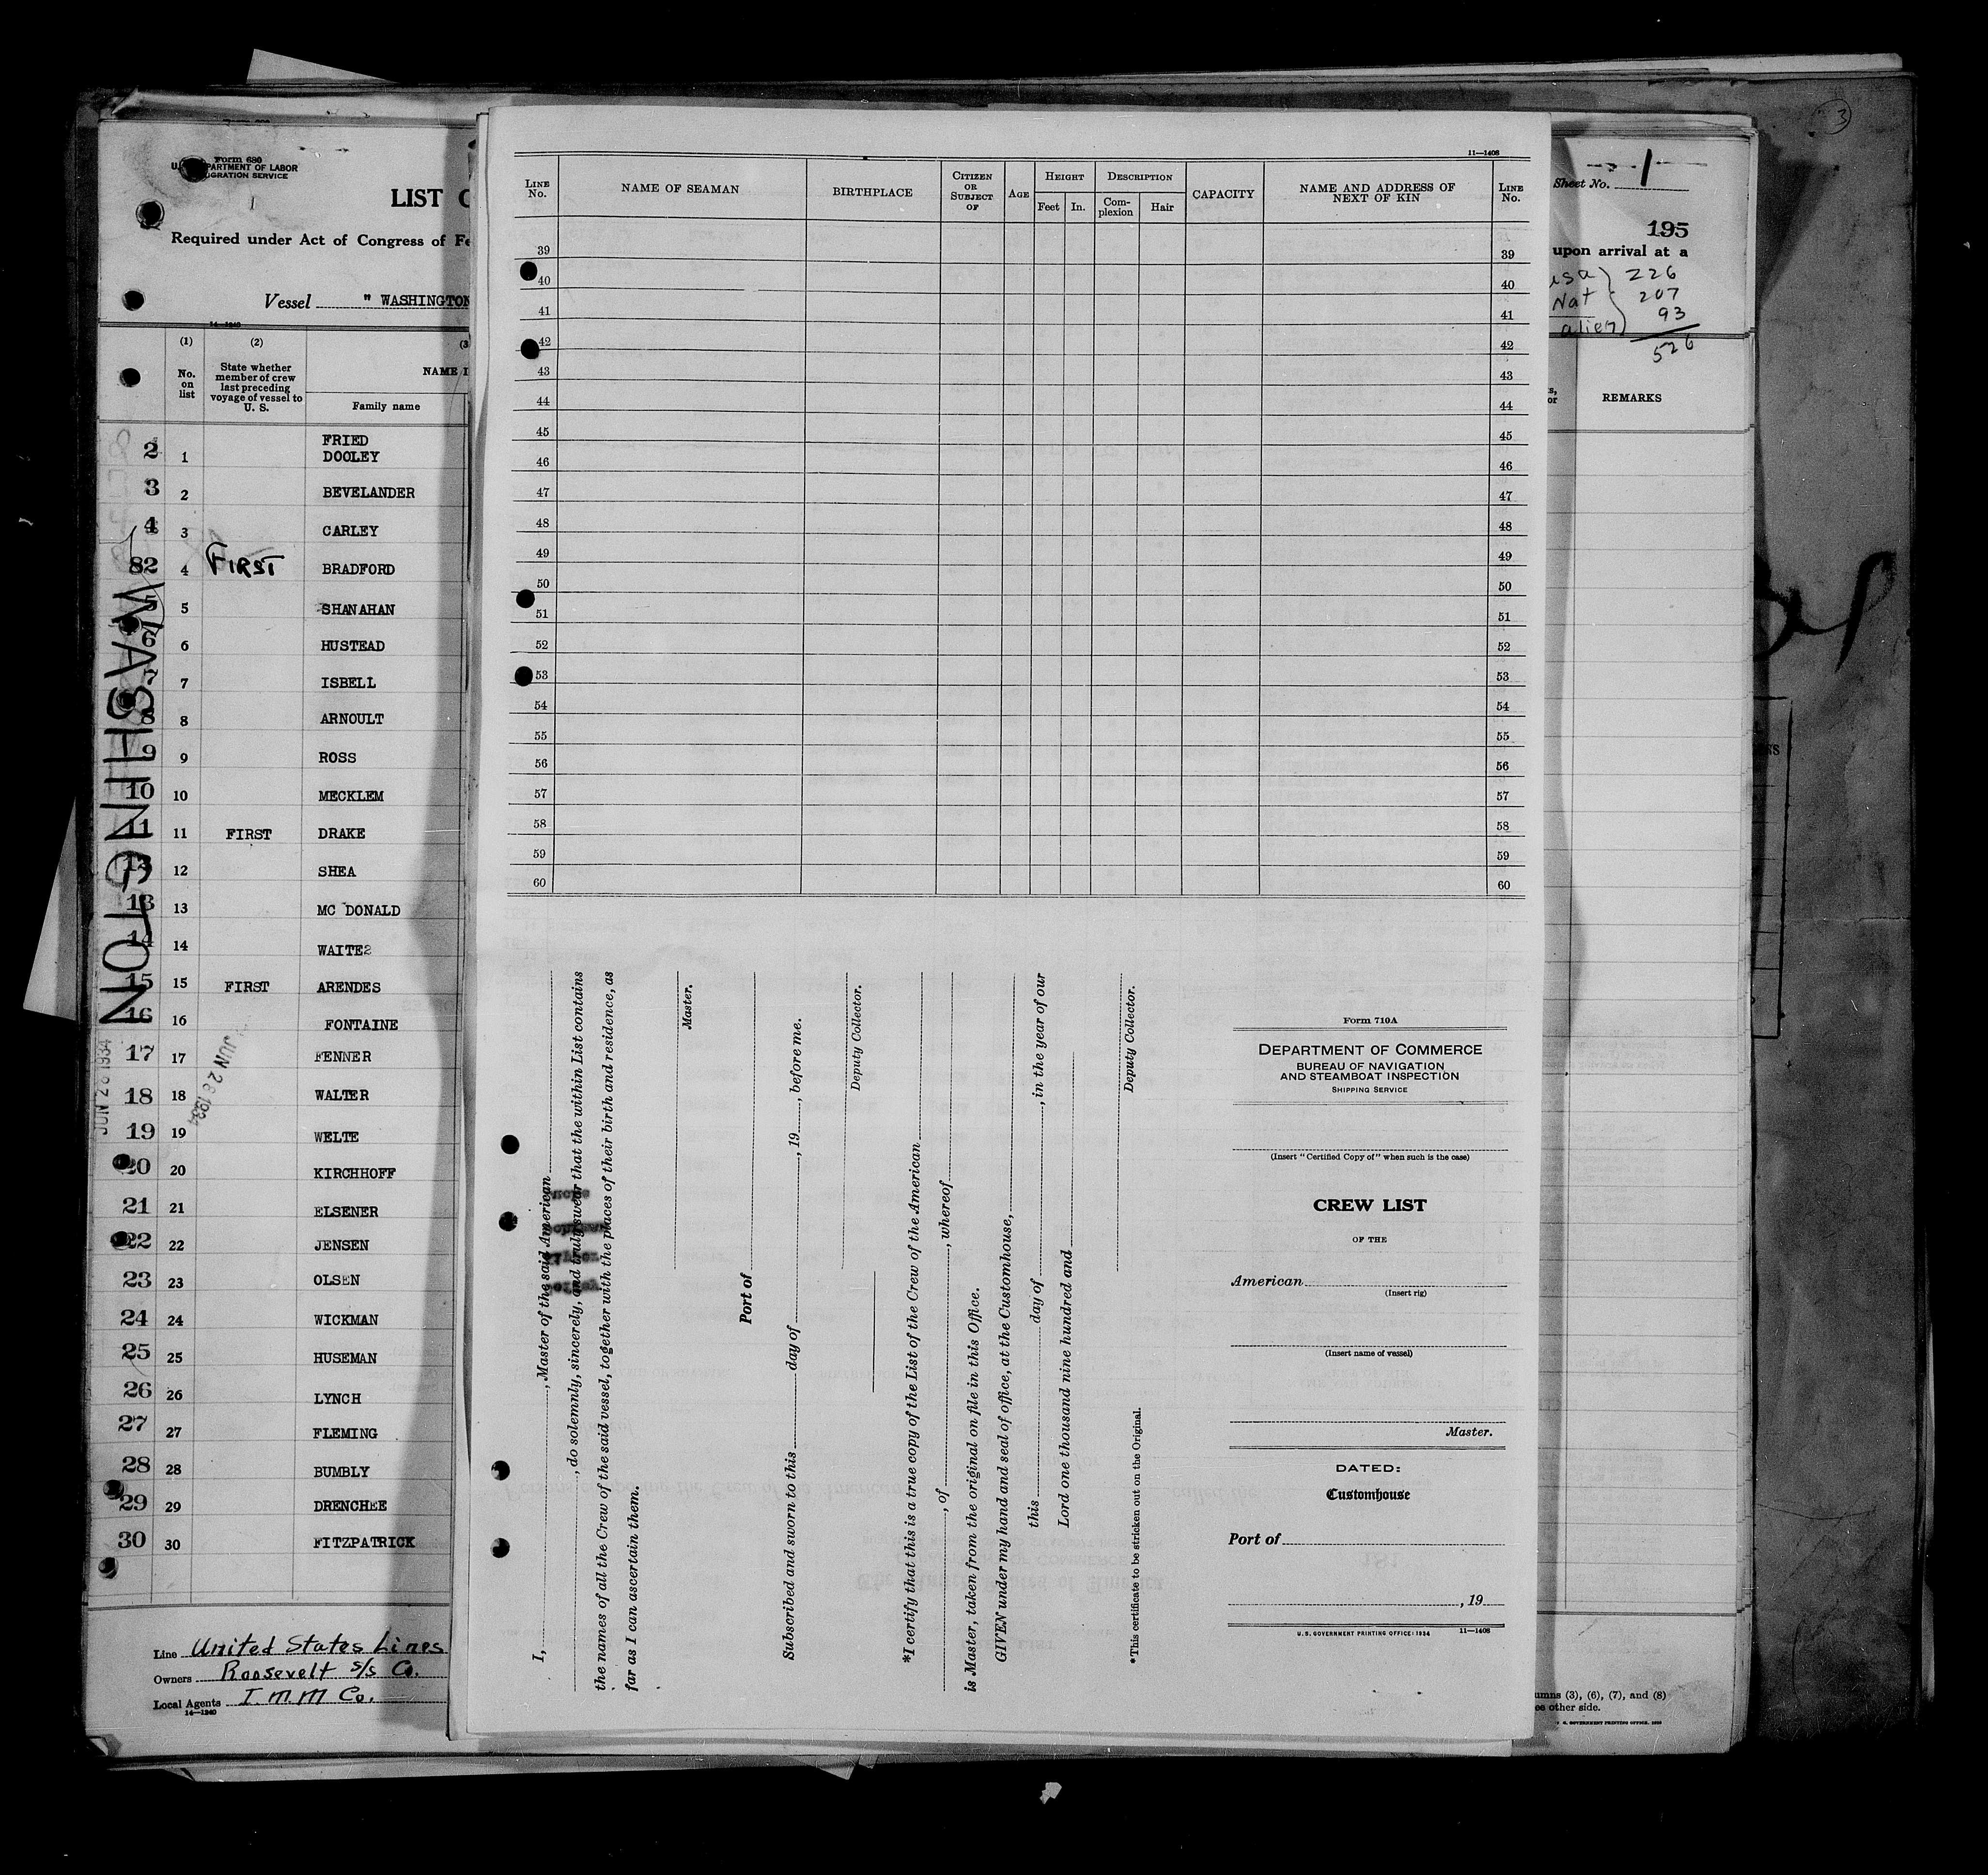 Form 680
U. S. DEPARTMENT OF LABOR
IMMIGRATION SERVICE
LIST
Required under Act of Congress of Fe
Vessel " WASHINGTON
14—1240
(1) (2) (3
No. on list
State whether member of crew last preceding voyage of vessel to U. S.
NAME I
Family name
FRIED
2 1 DOOLEY
3 2 BEVELANDER
4 3 CARLEY
82 4 FIRST BRADFORD
5 5 SHANAHAN
6 6 HUSTEAD
7 7 ISBELL
8 8 ARNOULT
9 9 ROSS
10 10 MECKLEM
11 11 FIRST DRAKE
12 12 SHEA
13 13 MC DONALD
14 14 WAITE
15 15 FIRST ARENDES
16 16 FONTAINE
17 17 FENNER
18 18 WALTER
19 19 WELTE
20 20 KIRCHHOFF
21 21 ELSENER
22 22 JENSEN
23 23 OLSEN
24 24 WICKMAN
25 25 HUSEMAN
26 26 LYNCH
27 27 FLEMING
28 28 BUMBLY
29 29 DRENCHEE
30 30 FITZPATRICK
WASHINGTON
JUN 28 1934
JUN 28 1934
Line United States Lines
Owners Roosevelt s/s Co.
Local Agents I. M. M Co.
14—1240
11—1408
LINE No.
NAME OF SEAMAN
BIRTHPLACE
CITIZEN OR SUBJECT OF
AGE
HEIGHT
Feet In.
DESCRIPTION
Complexion Hair
CAPACITY
NAME AND ADDRESS OF NEXT OF KIN
LINE No.
39 39
40 40
41 41
42 42
43 43
44 44
45 45
46 46
47 47
48 48
49 49
50 50
51 51
52 52
53 53
54 54
55 55
56 56
57 57
58 58
59 59
60 60
I, , Master of the said American
, do solemnly, sincerely, and truly swear that the within List contains
the names of all the Crew of the said vessel, together with the places of their birth and residence, as
far as I can ascertain them.
Master.
Port of
Subscribed and sworn to this day of , 19 , before me.
Deputy Collector.
*I certify that this is a true copy of the List of the Crew of the American
, of , whereof
is Master, taken from the original on file in this Office.
GIVEN under my hand and seal of office, at the Customhouse,
this day of , in the year of our
Lord one thousand nine hundred and
Deputy Collector.
*This certificate to be stricken out on the Original.
Form 710A
DEPARTMENT OF COMMERCE
BUREAU OF NAVIGATION
AND STEAMBOAT INSPECTION
SHIPPING SERVICE
(Insert "Certified Copy of" when such is the case)
CREW LIST
OF THE
American
(Insert rig)
(Insert name of vessel)
Master.
DATED:
Customhouse
Port of
, 19
U. S. GOVERNMENT PRINTING OFFICE: 1934 11—1408
Sheet No. 1
195
upon arrival at a
usa 226
Nat 207
alien 93
526
REMARKS
umns (3), (6), (7), and (8)
other side.
3